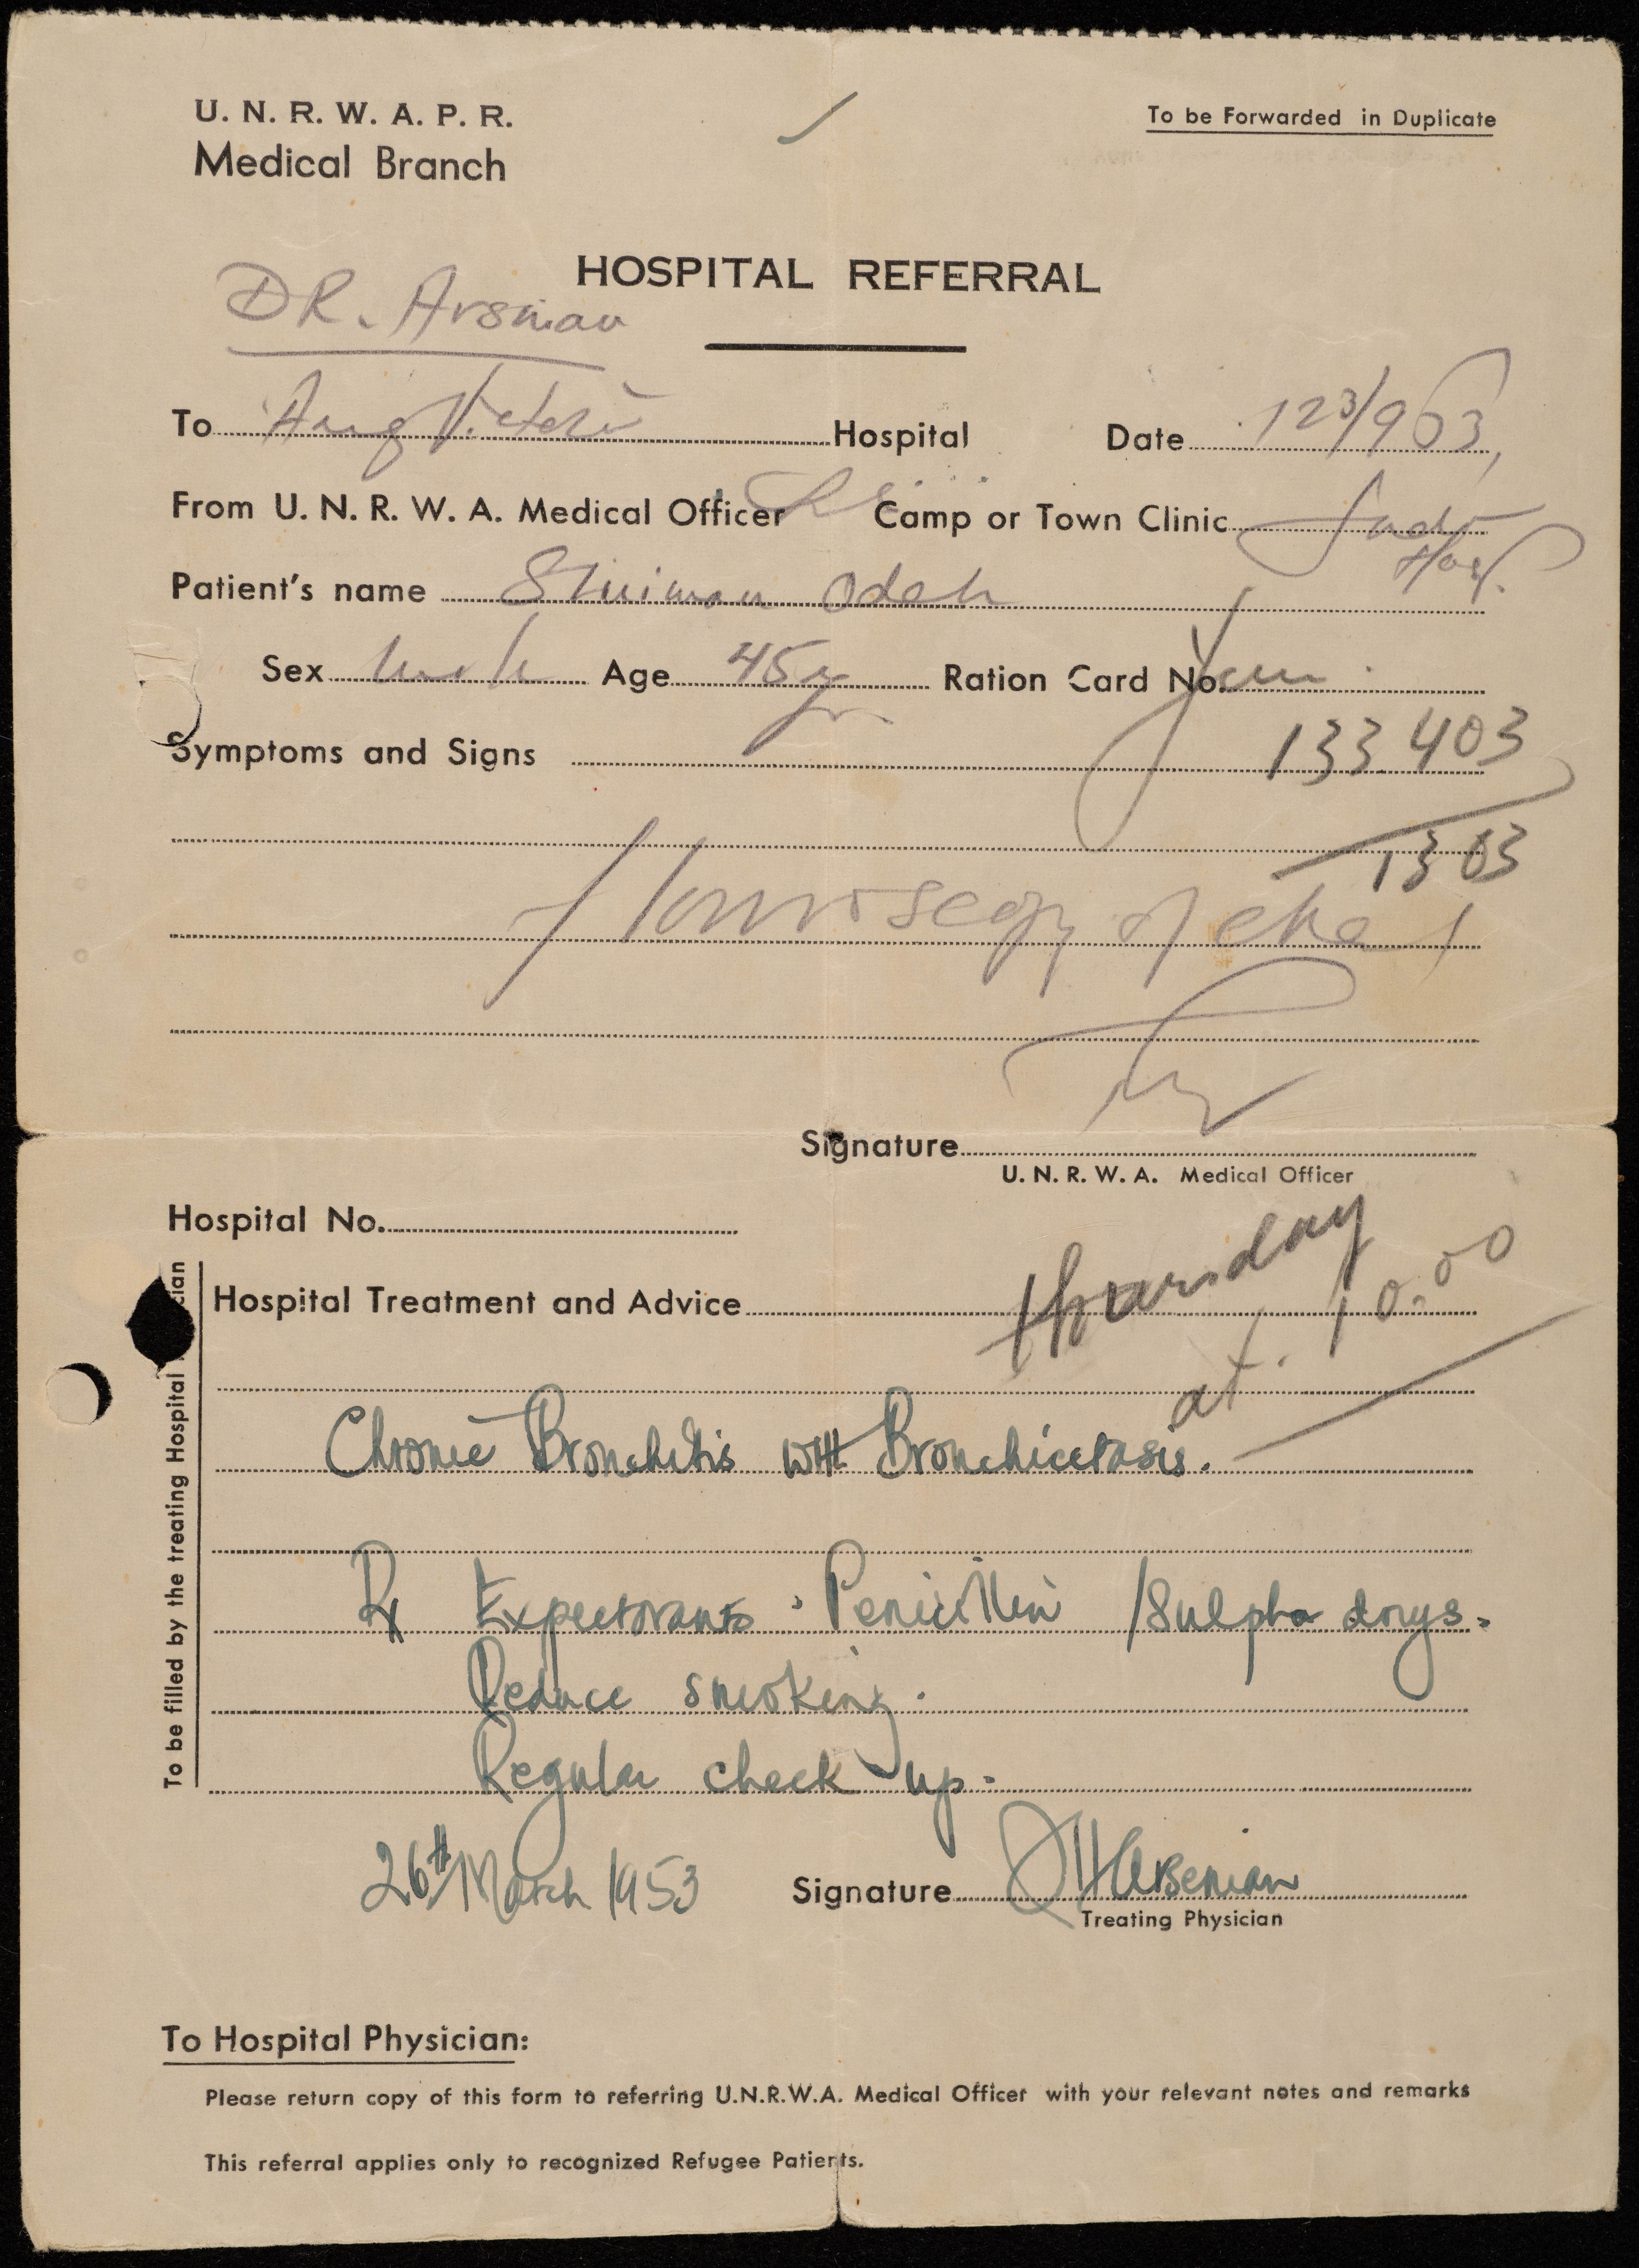 U. N. R. W. A. P. R.
To be Forwarded in Duplicate
Medical Branch
HOSPITAL REFERRAL
DR. Arsenian
To Aug Victoria Hospital Date 12 3/953
From U. N. R. W. A. Medical Officer Camp or Town Clinic Hosp.
Patient's name Odeh
Sex male Age 45 yr Ration Card No.
Symptoms and Signs 133 403
1303
Flouroscopy of chest
Signature
U. N. R. W. A. Medical Officer
Hospital No.
Thoursday
at. 10.00
Hospital Treatment and Advice
Chronic Bronchitis with Bronchiectasis.
Rx Expectorants. Penicillin / Sulpha drugs.
Reduce smoking.
Regular check up.
26th March 1953 Signature Arsenian
Treating Physician
To be filled by the treating Hospital
To Hospital Physician:
Please return copy of this form to referring U.N.R.W.A. Medical Officer with your relevant notes and remarks
This referral applies only to recognized Refugee Patients.